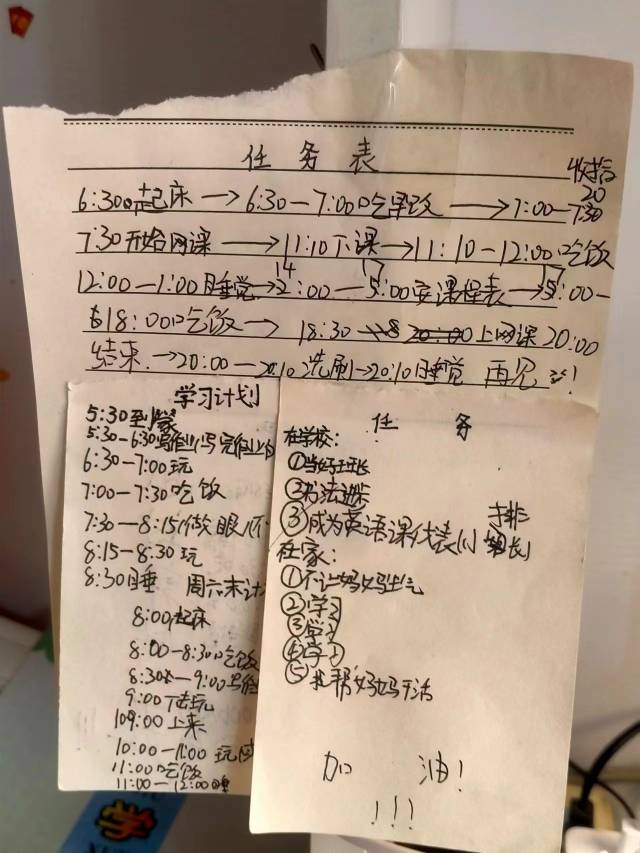 任务表
收拾
6:30起床→6:30—7:00吃早饭→7:00—7:30
20
7:30开始网课→11:10下课→11:10—12:00吃饭
14 17 17
12:00—1:00睡觉→2:00—5:00安课程表→5:00—
18:00吃饭→18:30 20:00上网课20:00
结束.→20:00—20:10洗刷→20:10睡觉 再见!
学习计划
5:30到家
5:30—6:30写作业(写完作业
6:30—7:00玩
7:00—7:30吃饭
7:30—8:15做眼
8:15—8:30玩
8:30睡 周六末计
8:00起床
8:00—8:30吃饭
8:30—9:00写作
9:00下去玩
10:00上来
10:00—11:00玩
11:00吃饭
11:00—12:00睡
任务
在学校:
①当好班长
②书法进步
③成为英语课代表(排
组长)
在家:
①不让妈妈生气
②学习
③学习
④学习
⑤帮妈妈干活
加油!
!!!
学